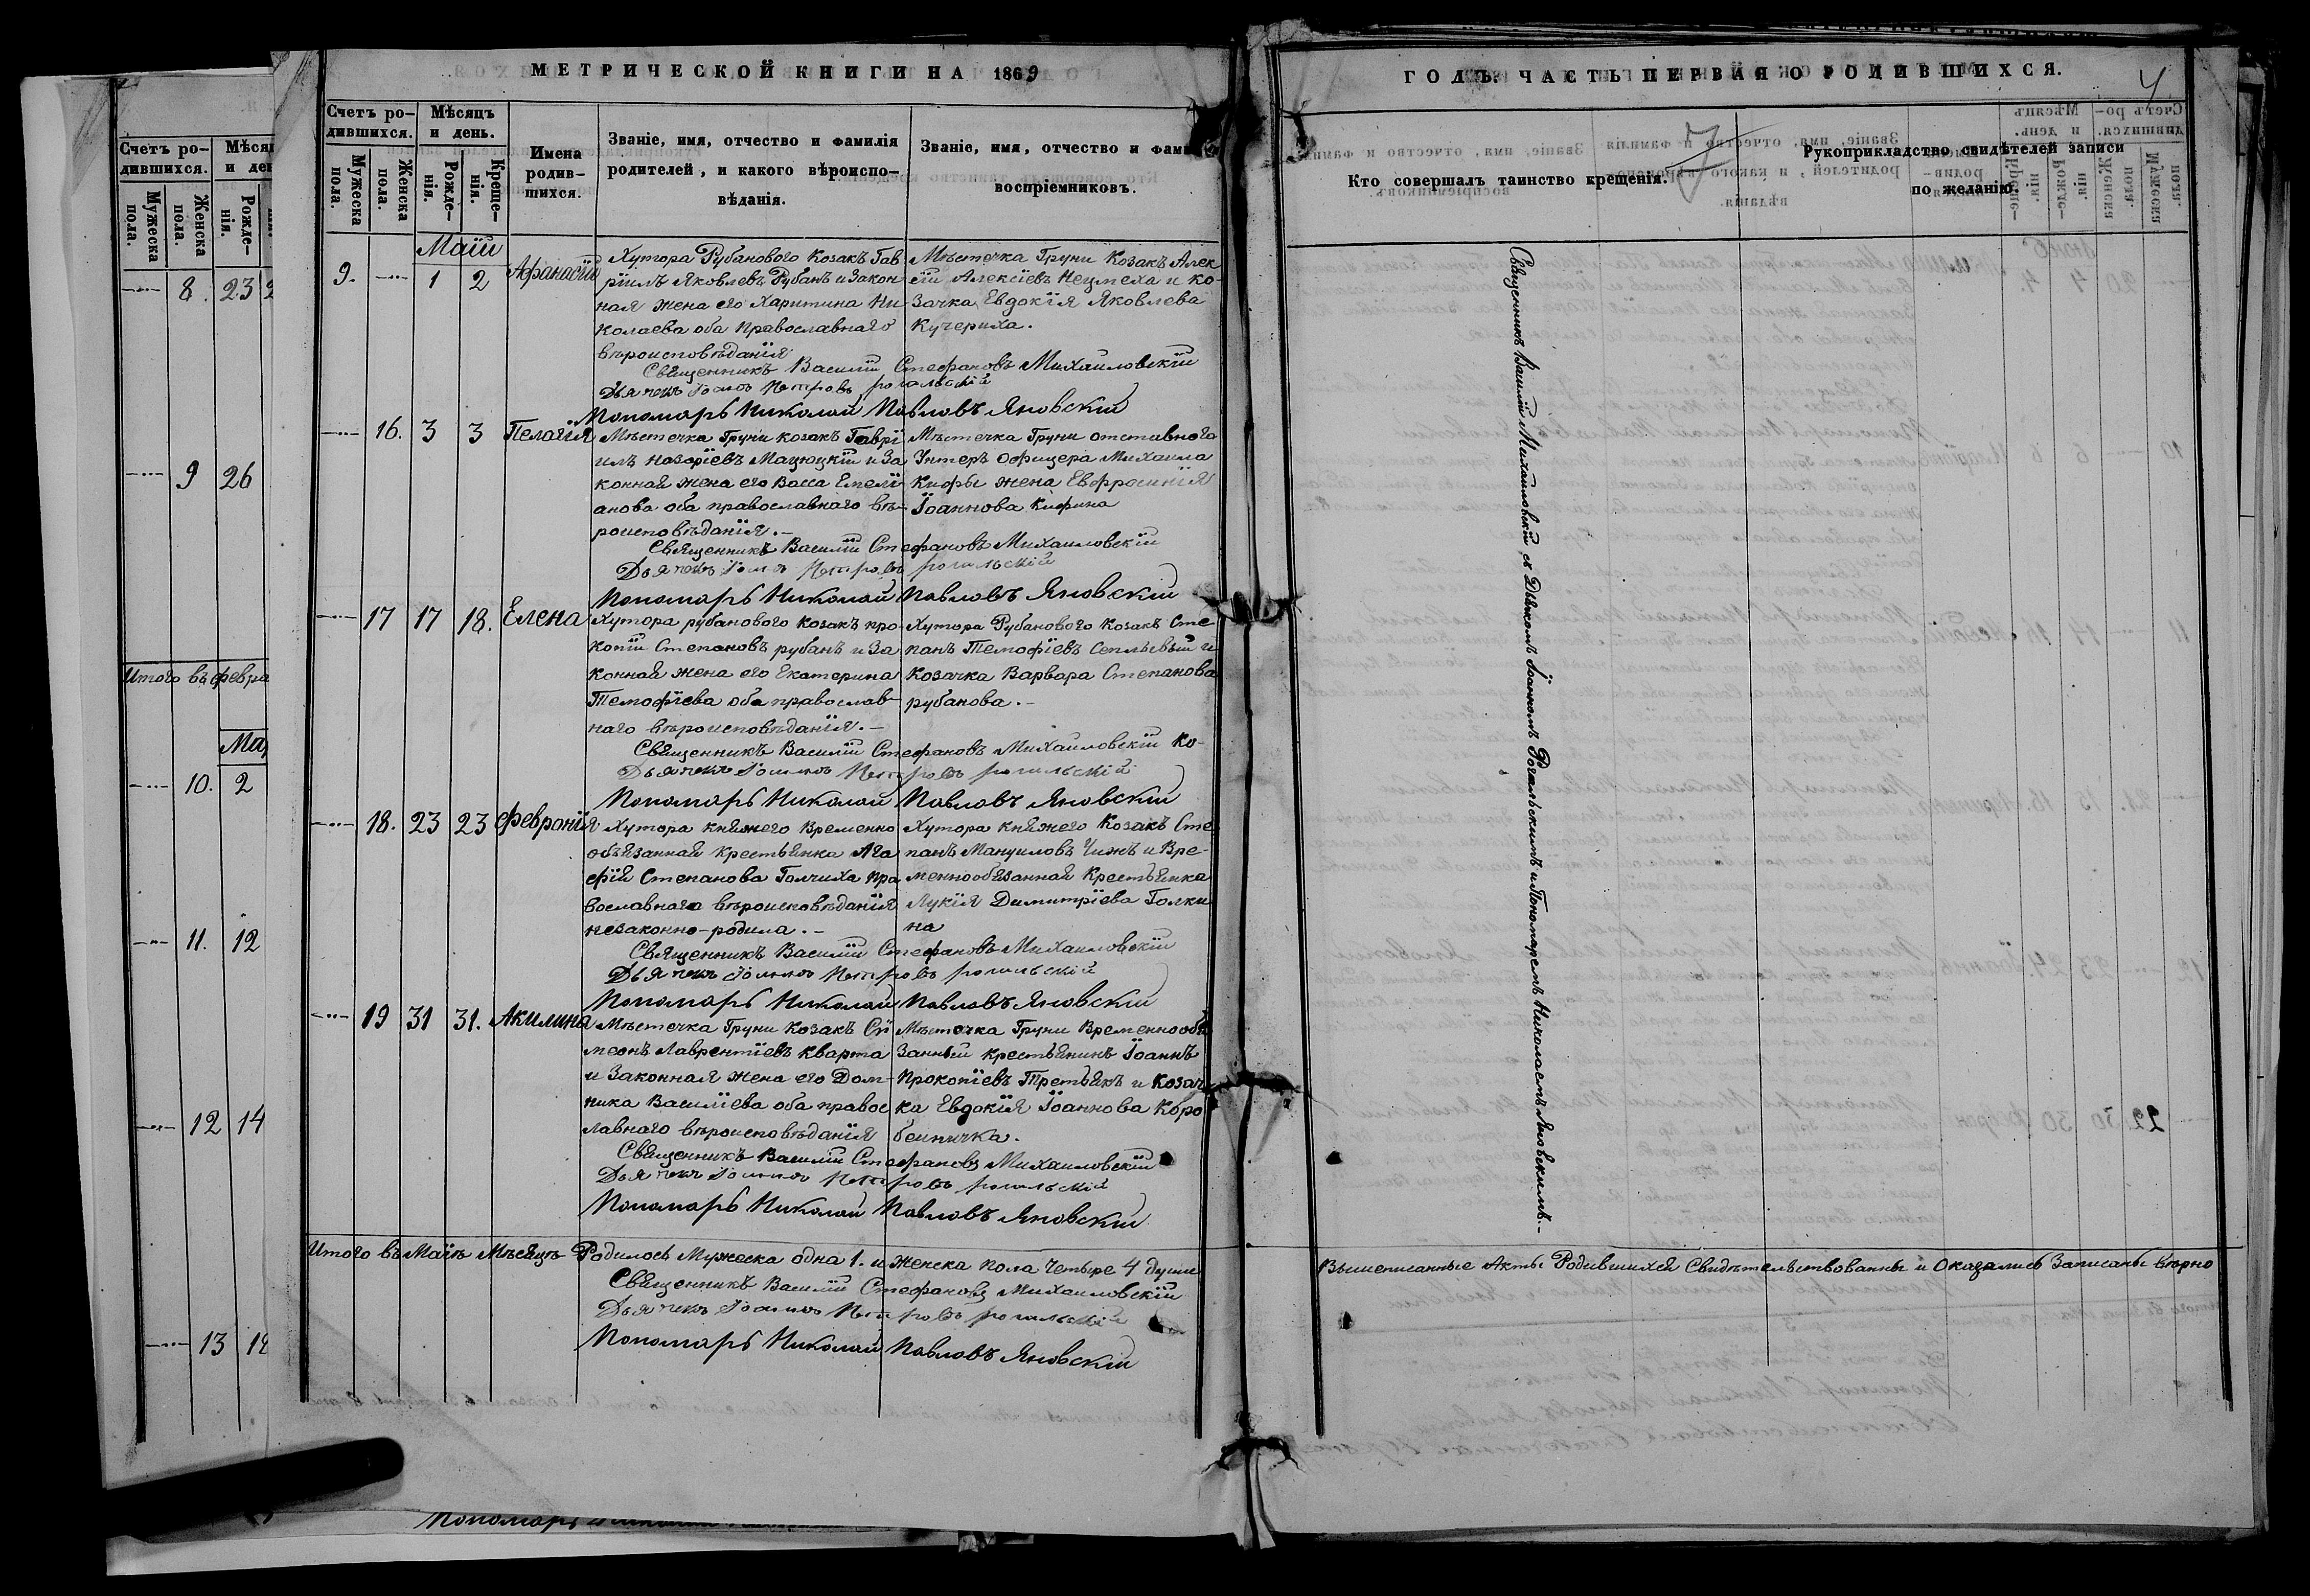 МЕТРИЧЕСКОЙ КНИГИ НА 1869
Счетъ ро-
дившихся.
Мужеска
пола.
Женска
пола.
Мѣсяцъ
и день.
Рожде-
нія.
Креще-
нія.
Имена
родив-
шихся.
Званіе, имя, отчество и фамилія
родителей, и какого вѣроиспо-
вѣданія.
Званіе, имя, отчество и фами
воспріемниковъ.
Маїи
9. 1 2 Афанасїи
Хутора Рубанового Козакъ Гав
рїилъ Яковлевъ Рубанъ и закон
ная жена его Харитина Ни
колаева оба православнаго
вѣроисповѣданїя
Мѣстечка Груни Козакъ Алек
сїи Алексїевъ Неумеха и ко-
зачка Евдокїя Яковлева
Кучериха.
Священникъ Василїи Стефановъ Михаиловскїи
Дьячекъ Іоаннъ Петровъ рогальскїй
Пономарь Николай Павловъ Яновскїй
16. 3 3 Пелагїя
Мѣстечка Груни козакъ Гаврї
илъ Назарїевъ Мацюцкїи и за
конная жена его Васса Емелї
анова оба православнаго вѣ-
роисповѣданїя.-
Мѣстечка Груни отставного
Унтеръ офицера Михаила
Кифы жена Евфросинїя
Їоаннова Кифина
Священникъ Василїи Стефановъ Михаиловскїи
Дьячекъ Іоаннъ Петровъ рогальскїй
Пономарь Николай Павловъ Яновскїй
17 17 18. Елена
Хутора рубанового козакъ про-
копїи Степановъ рубанъ и за
конная жена его Екатерина
Темофїева оба православ-
наго вѣроисповѣданїя.-
Хутора Рубанового Козакъ Сте
панъ Темофїевъ и
Козачка Варвара Степанова
рубанова.-
Священникъ Василїи Стефановъ Михаиловскїи ко-
Дьячекъ Іоаннъ Петровъ рогальскїй
Пономарь Николай Павловъ Яновскїй
18. 23 23 Февронїя
Хутора княжего Временно
обязанная крестьянка Ага
фїя Степанова Голчиха пра
вославнаго вѣроисповѣданїя
незаконно-родила.-
Хутора княжего Козакъ Сте
панъ Мануиловъ Чижъ и Вре-
меннообязанная Крестьянка
Лукїя Димитрїева Голки
на
Священникъ Василїи Стефановъ Михаиловскїи
Дьячекъ Іоаннъ Петровъ рогальскїй
Пономарь Николай Павловъ Яновскїй
19 31 31. Акилина
Мѣстечка Груни Козакъ Сї
меонъ Лаврентїевъ Кварта
и законная жена его Дом-
ника Василїева оба правос
лавнаго вѣроисповѣданїя
Мѣстечка Груни Временнообя
занный крестьянинъ Їоаннъ
Прокопїевъ Третьякъ и Козач
ка Евдокїя Їоаннова Коро
беиничка.
Священникъ Василїи Стефановъ Михаиловскїи
Дьячекъ Іоаннъ Петровъ рогальскїй
Пономарь Николай Павловъ Яновскїй
Итого въ Маїѣ Мѣсяцѣ Родилось Мужеска одна 1. и женска пола четыре 4 души
Священникъ Василїи Стефановъ Михаиловскїи
Дьячекъ Іоаннъ Петровъ рогальскїй
Пономарь Николай Павловъ Яновскїй
ГОДЪ. ЧАСТЬ ПЕРВАЯ О РОДИВШИХСЯ.
4
7
Кто совершалъ таинство крещенія.
Рукоприкладство свидѣтелей записи
по желанію.
Священникъ Василїй Михаиловскїй съ Дьячкомъ Їоанномъ Рогальскимъ и Пономаремъ Николаемъ Яновскимъ.-
Вышеписанные Акты Родившихся Свидѣтельствованны и Оказались Записаны вѣрно
Счетъ ро-
дившихся.
Мужеска
пола.
Женска
пола.
Мѣсяц
и ден
Рожде-
нія.
8. 23 2
9 26
Итого въ февра
Ма
10. 2
11. 12
12 14
13 18
Пономарь